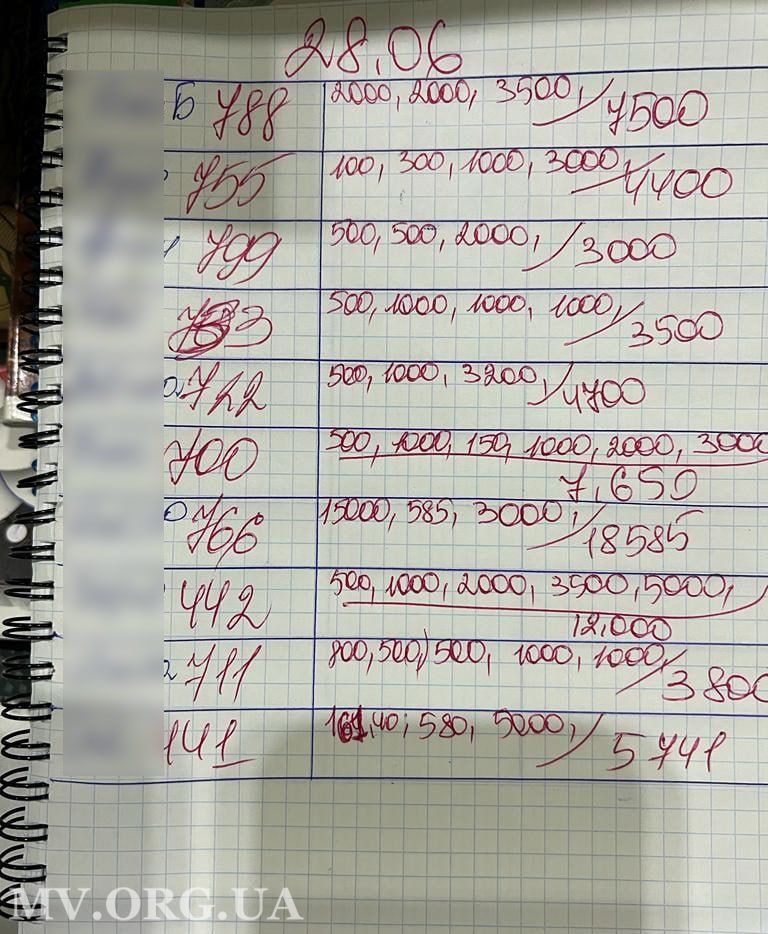 28.06
Б 788 2000, 2000, 3500, / 7500
755 100, 300, 1000, 3000, / 4400
799 500, 500, 2000, / 3000
733 500, 1000, 1000, 1000, / 3500
722 500, 1000, 3200, / 4700
700 500, 1000, 150, 1000, 2000, 3000
7.650
766 15000, 585, 3000, / 18585
442 500, 1000, 2000, 3500, 5000,
12.000
711 800, 500, 500, 1000, 1000, / 3800
141 161,40; 580, 5000, / 5741
MV.ORG.UA